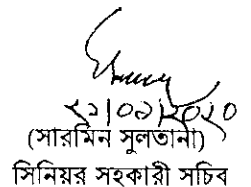 ২১|০১|২০২০
(সারমিন সুলতানা)
সিনিয়র সহকারী সচিব